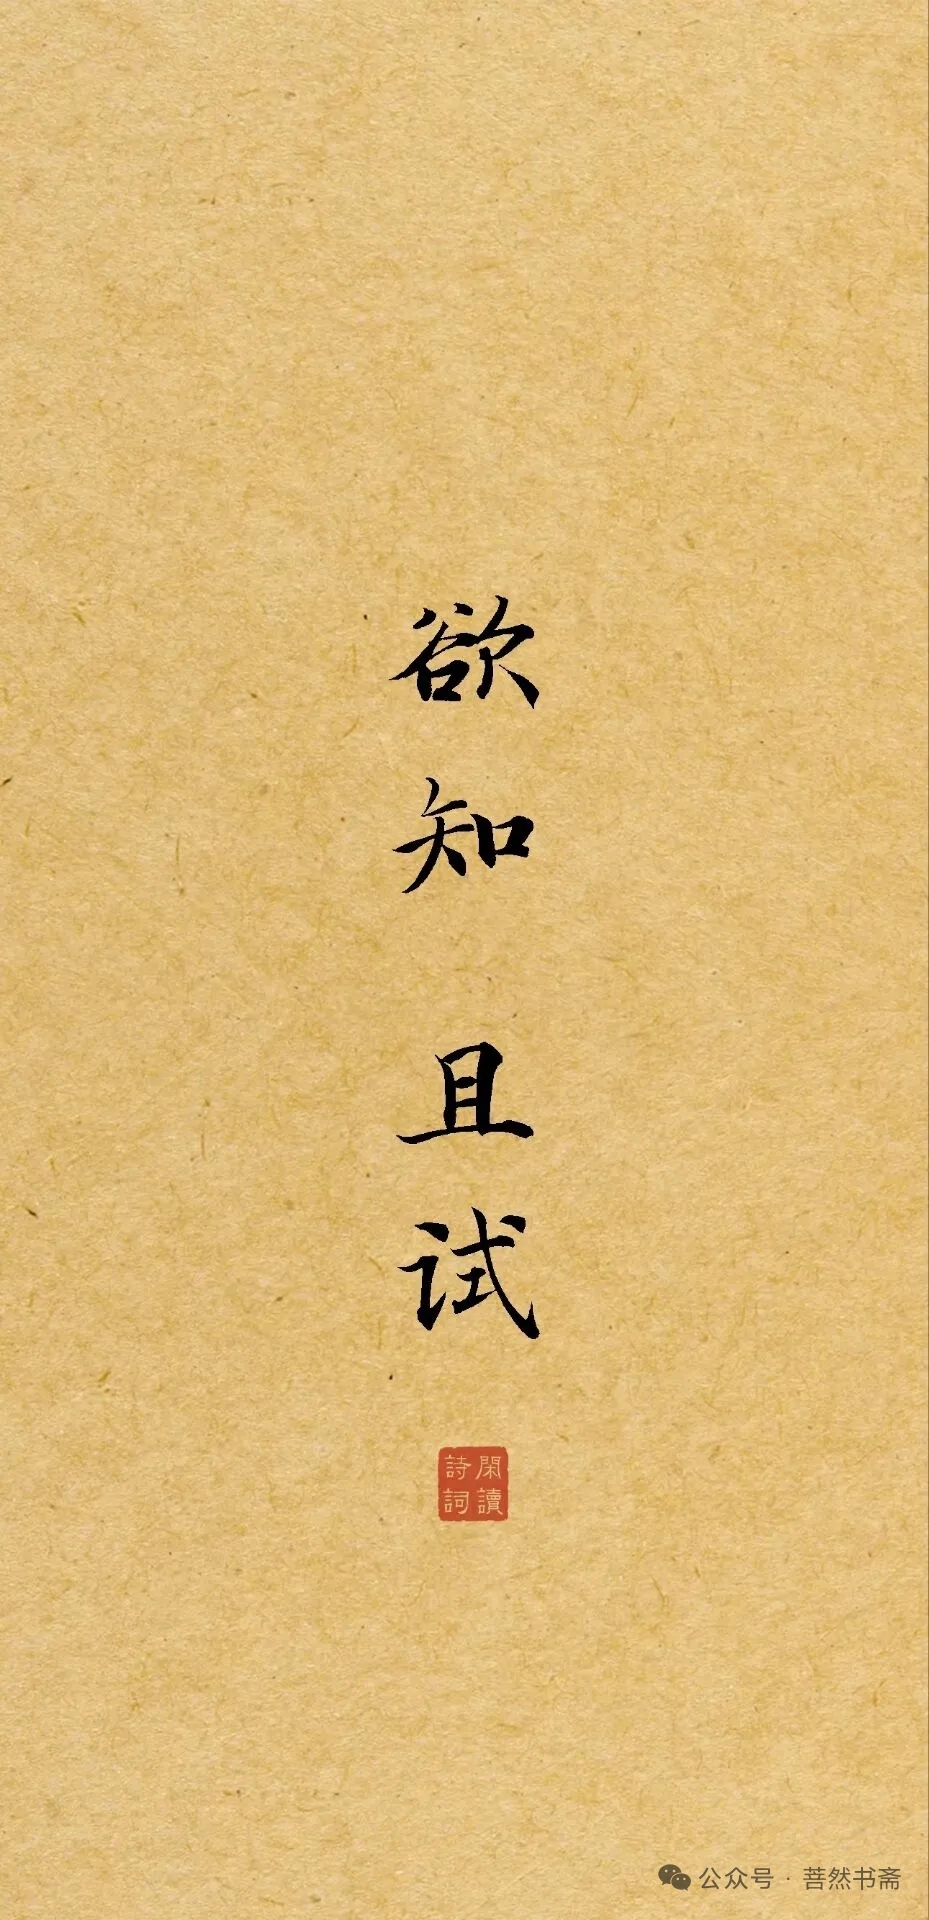 欲知
且试
閑讀
詩詞
公众号 · 菩然书斋